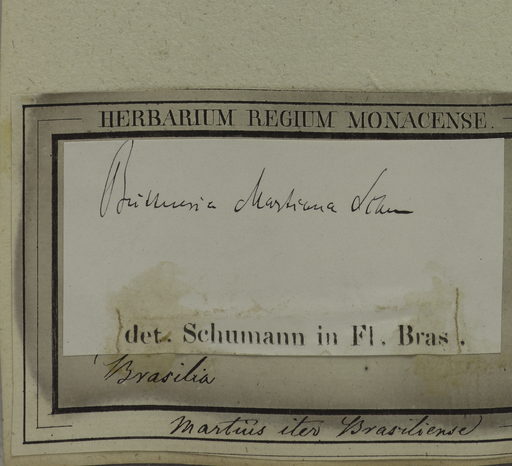 HERBARIUM REGIUM MONACENSE.
Büttneria Martiana Schum
det. Schumann in Fl. Bras.
Brasilia
Martius iter Brasiliense